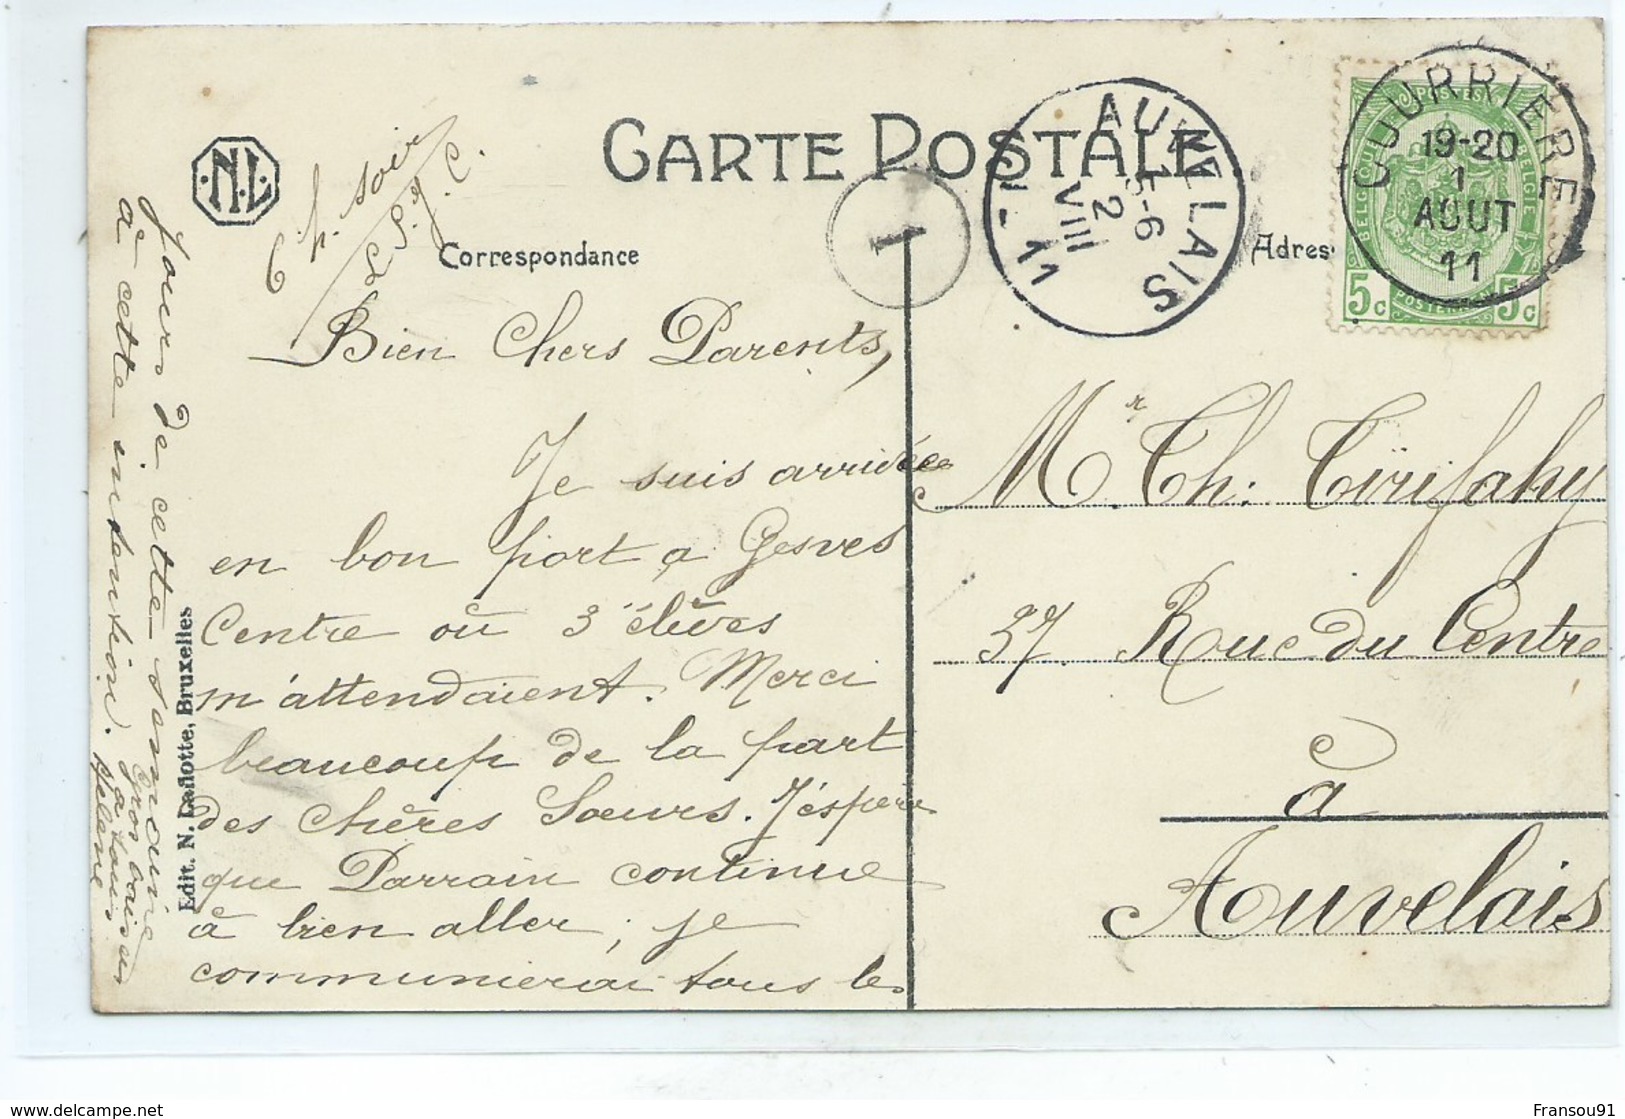 CARTE POSTALE
N.L.
Correspondance
Adres
6 h. soir
L. S. J. C.
Bien Chers Parents,
Je suis arrivée
en bon port à Gesves
Centre où 3 élèves
m'attendaient. Merci
beaucoup de la part
des chères Sœurs. J'espère
que Parrain continue
à bien aller ; je
communierai tous les
jours de cette semaine
à cette intention.
Gros baisers
à tous
Hélène
Edit. N. Laflotte, Bruxelles
1
AUVELAIS
5-6
2
VIII
11
COURRIERE
19-20
1
AOUT
11
POSTES
BELGIQUE
BELGIE
5c
POSTERIJEN
5c
Mr Th. Tirifahy
37. Rue du Centre
à
Auvelais
Fransou91